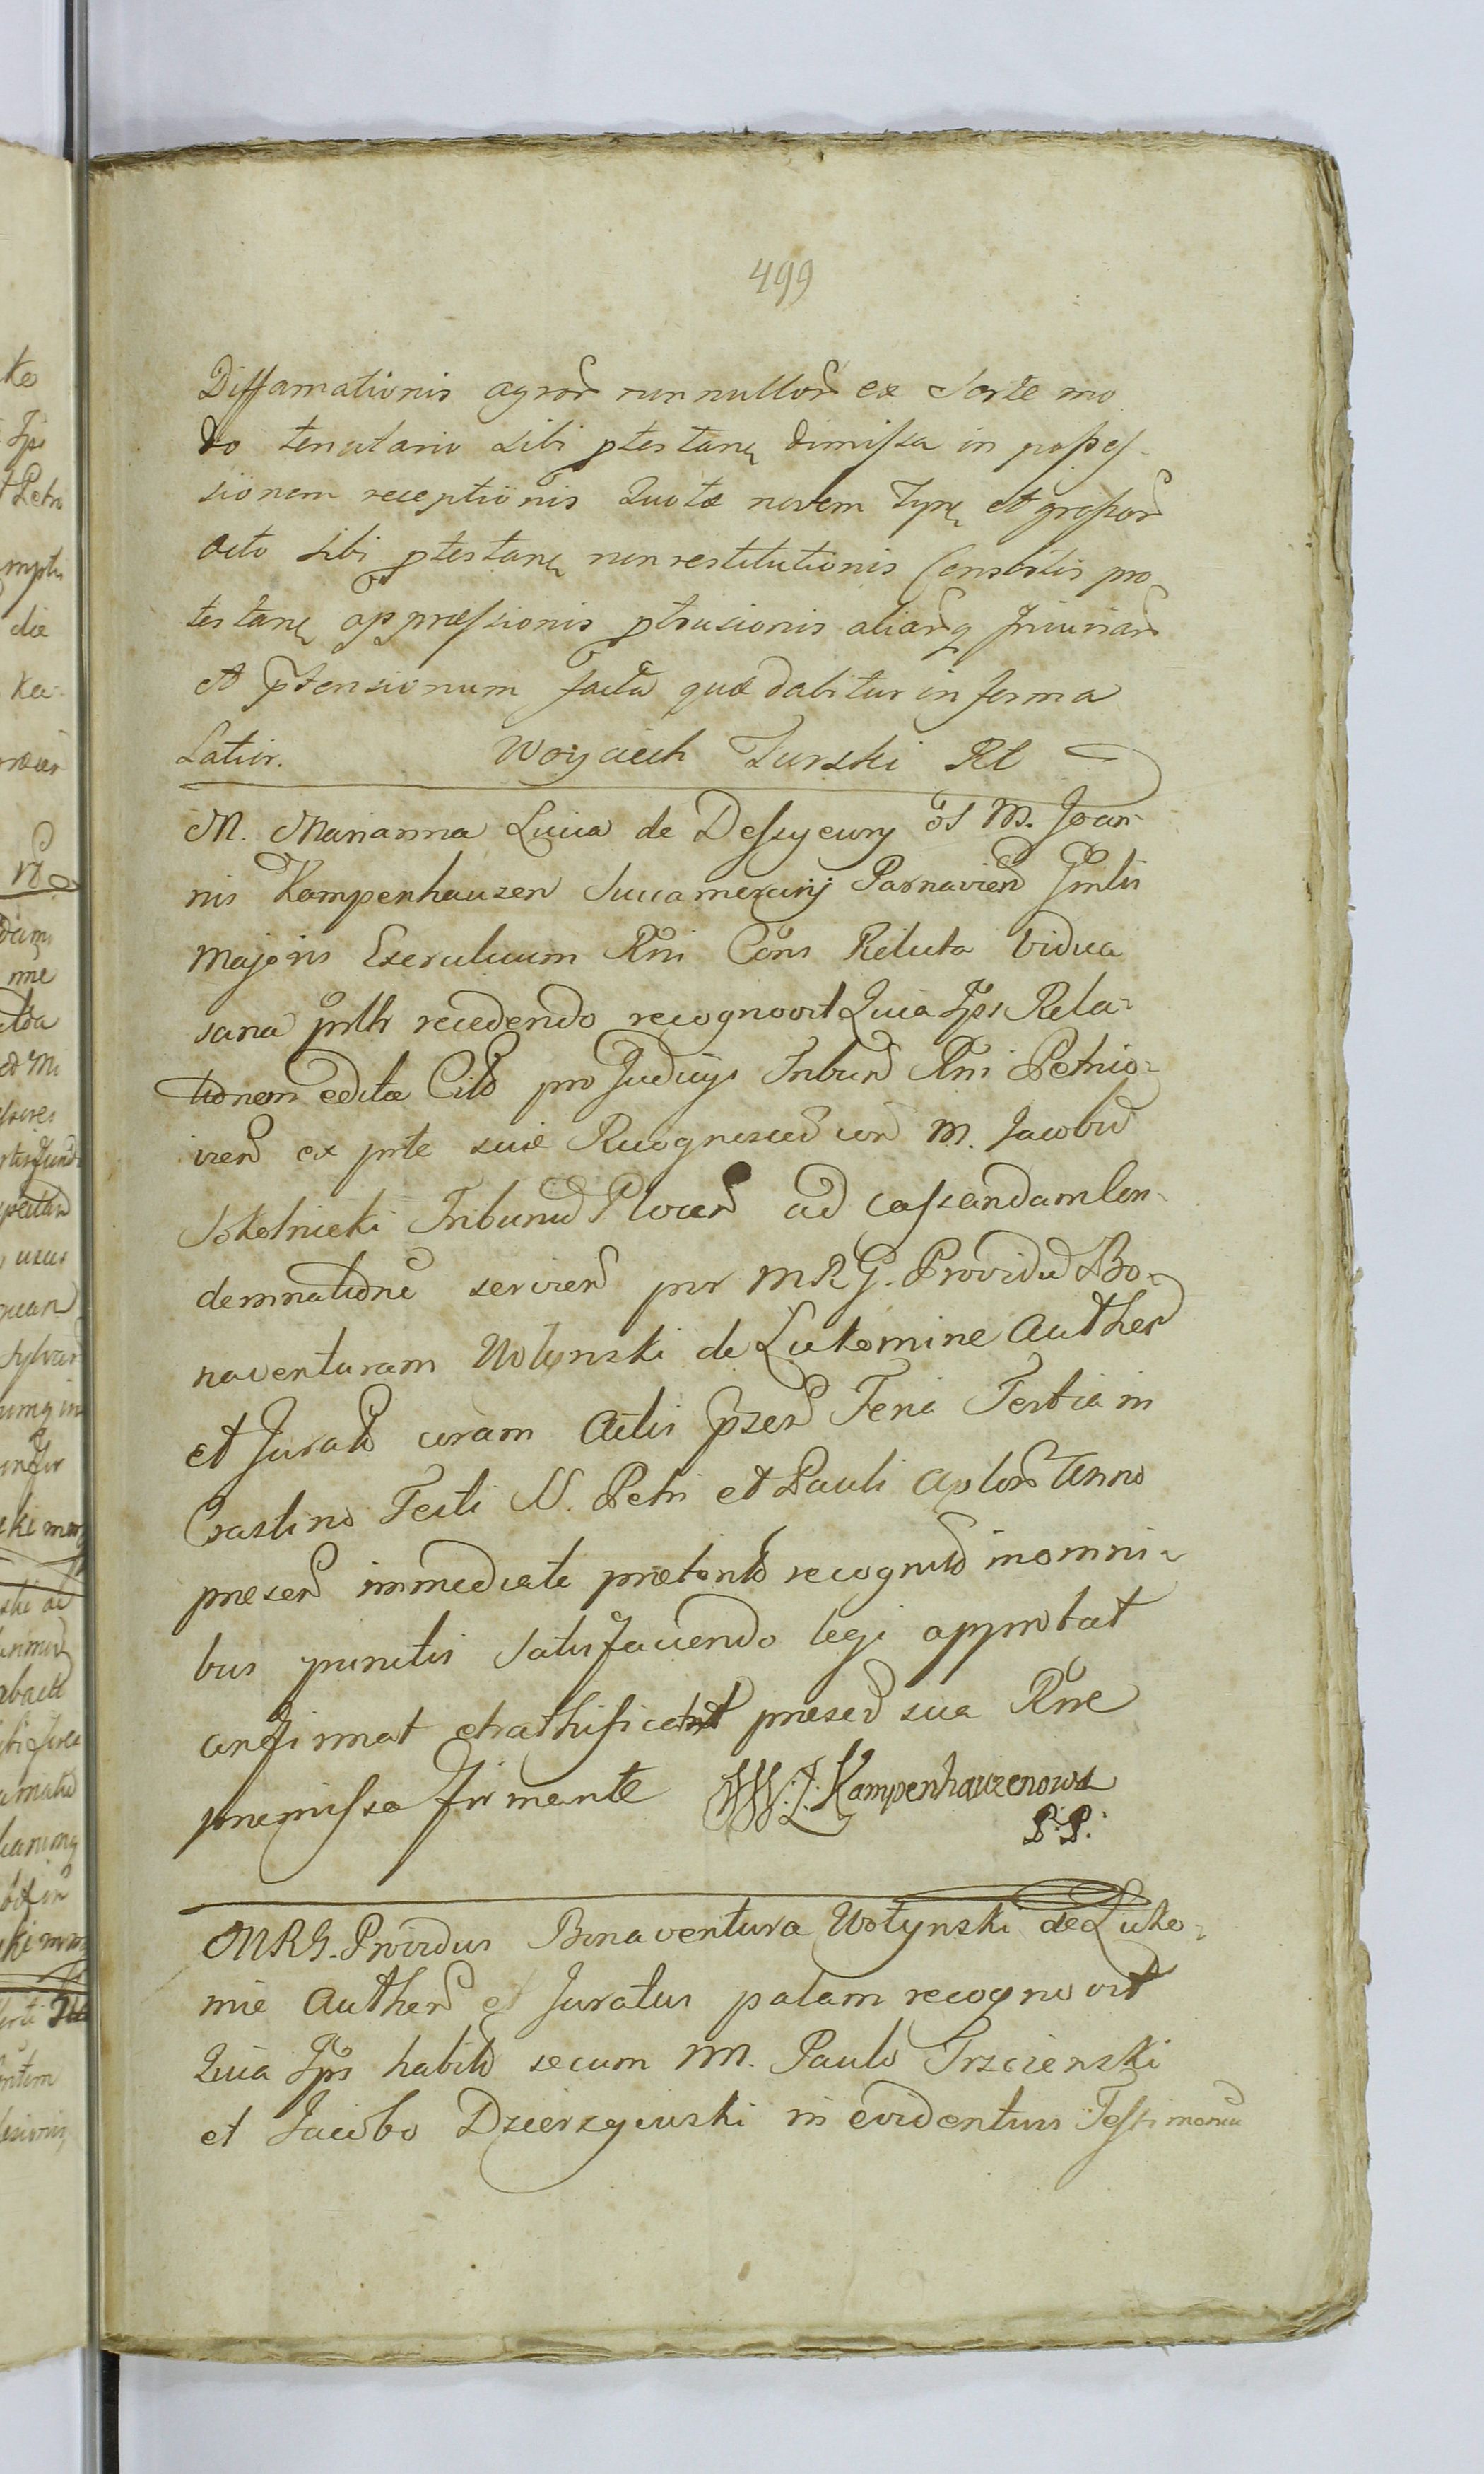 499
Diffamationis agror nonnullor ex Sorte mo
do tenutario sibi ptestanẹ dimissa in posses-
sionem receptionis Quotæ novem Tynẹ et grossor
octo sibi ptestanẹ non restitutionis Consolis pro
testanẹ oppræssionis ptrusionis aliarq Iniuriar
et ptensionum facta quæ dabitur in forma
Latior. Woyciech Turski Rt
M. Marianna Lucia de Desiyeury ol M. Joan-
nis Kampenhauzen Succamerarij Parnavien Gnlis
Majoris Exercituum Rni Cons Relicta Vidua
sana pnlr recedendo recognovit Quia Ips Rela-
tionem editæ Citt pro Judicijs Tribun Rni Petrico-
vien ex pte suæ Recognoscen con M. Jacobu
Sokolnicki Tribunu Plocen ad cassandam Con-
demnatione servien per MRG. Providu Bo-
naventuram Wolynski de Lukomine Authen
et Jurat coram Actis psen Feria Tertia in
Crastino Festi SS. Petri et Pauli Aplor Anno
presen immediate prætento recognit in omni-
bus punctis satisfaciendo legi approbat
confirmat et rathificat presen sua Rne
premissa firmante MW:J: Kampenhauzenowa
P:P:
MRG. Providus Bonaventura Wołynski de Luko-
mie Authen et Juratus palam recognovit
Quia Ips habito secum M. Paulo Trscienski
et Jacobo Dzierzgewski in evidentius Testimoniu